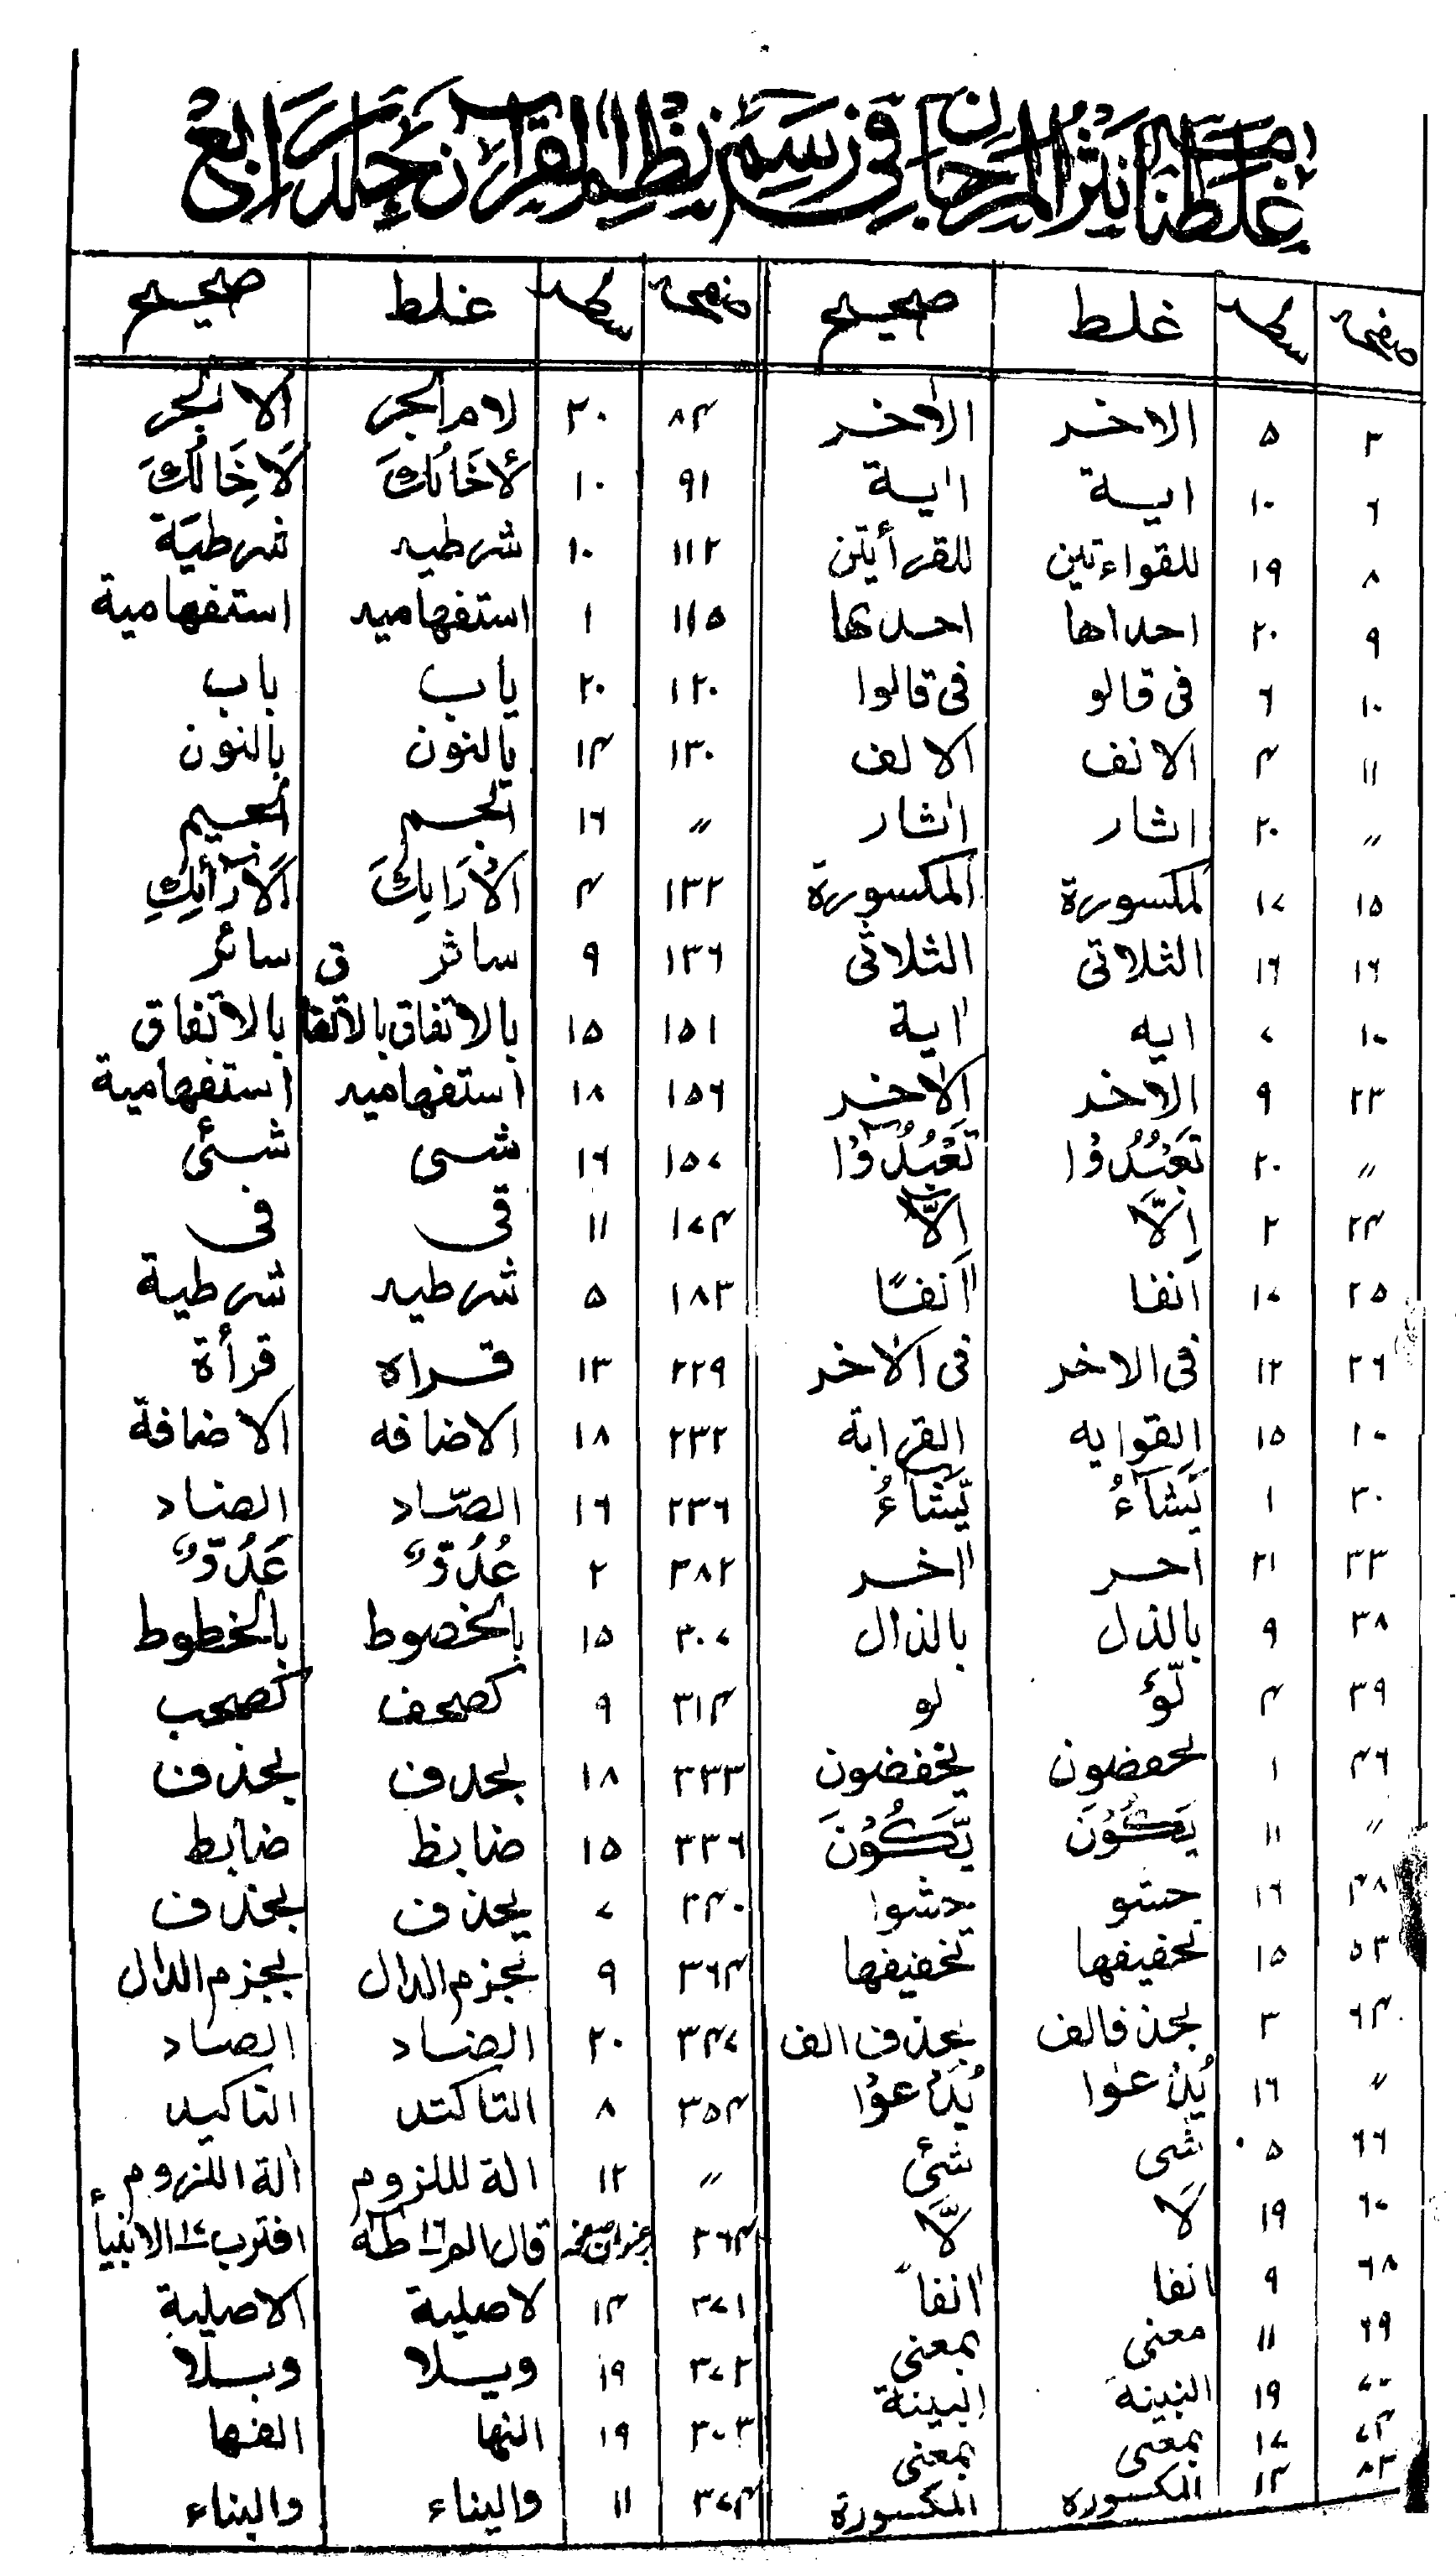 غلطنامہ نثر المرجان فی رسم نظم القرآن جلد رابع
صفحہ سطر غلط صحیح صفحہ سطر غلط صحیح
۳ ۵ الاخر الاٰخر ۸۴ ۲۰ لام الجر الا بالجر
۶ ۱۰ اية اٰية ۹۱ ۱۰
۸ ۱۹ للقواءتين للقرأيتن ۱۱۲ ۱۰ شرطيہ شرطيّة
۹ ۲۰ احداها احدٰها ۱۱۵ ۱ استفهاميہ استفهامية
۱۰ ۶ فى قالو فى قالوا ۱۲۰ ۲۰ ياب باب
۱۱ ۴ الانف الالف ۱۳۰ ۱۴ يالنون بالنون
〃 ۲۰ اثار اٰثار 〃 ۱۶ الجم الجيم
۱۵ ۱۷ لمكسورة المكسورة ۱۳۲ ۴ الْاَرَايِكَ الْاَرَأيِكِ
۱۶ ۱۶ الثلاتى الثلاثى ۱۳۶ ۹ ساثر سائر
۱۷ ۷ ايه اٰية ۱۵۱ ۱۵ بالاتفاق بالاتفاق بالاتفاق
۲۳ ۹ الاخد الاٰخر ۱۵۶ ۱۸ استفهاميہ استفهامية
〃 ۲۰ تَعْبُدُوْا تَعْبُدُوْا ۱۵۷ ۱۶ شى شئى
۲۴ ۲ اِلَّا اِلَّا ۱۷۴ ۱۱ قى فى
۲۵ ۱۷ انفا اٰنفًا ۱۸۳ ۵ شرطيہ شرطية
۲۶ ۱۲ فى الاخر فى الاٰخر ۲۲۹ ۱۳ قراه قرأة
۲۷ ۱۵ القوايه القراية ۲۳۲ ۱۸ الاضافه الاضافة
۳۰ ۱ يَشَآءُ يَّشَآءُ ۲۳۶ ۱۶ الصّاد الضاد
۳۳ ۲۱ احر اٰخر ۳۸۲ ۲ عُدُوٌّ عَدُوٌّ
۳۸ ۹ بالذل بالذال ۳۰۷ ۱۵ بالخصوط بالخطوط
۳۹ ۴ لّوْ لو ۳۱۴ ۹ كصحف كصحب
۴۶ ۱ يحفضون يخفضون ۳۳۳ ۱۸ بحدف بحذف
〃 ۱۱ يَكُوْنَ يَّكُوْنَ ۳۳۶ ۱۵ ضابظ ضابط
۴۸ ۱۶ حشو حشوا ۳۴۰ ۷ يحذف بحذف
۵۳ ۱۵ تحفيفها تخفيفها ۳۶۴ ۹ بجزم الدال بجزم الدال
۶۴ ۳ بحذفالف بحذف الف ۳۴۷ ۲۰ الضاد الصاد
〃 ۱۶ يُدْعوا يُدْعَوْا ۳۵۴ ۸ التاكتد التاكيد
۶۶ ۵ شى شئ 〃 ۱۲ الة لللزوم الة اللزوم
۶۷ ۱۹ لَا لَّا ۳۶۴ عنوان صفحہ قال الم ۱۶ طٰهٰ اقترب ۱۷ الانبيأ
۶۸ ۹ انفا اٰنفاً ۳۷۱ ۱۴ لاصلية الاصلية
۶۹ ۱۱ معنى بمعنى ۳۷۲ ۱۹ ويلا وبلا
۷۰ ۱۹ النينة البينة ۳۰۳ ۱۹ النها الفها
۷۴ ۱۷ بمعى بمعنى
۸۳ ۱۴ المكسوره المكسورة ۳۷۴ ۱۱ واليناء والبناء